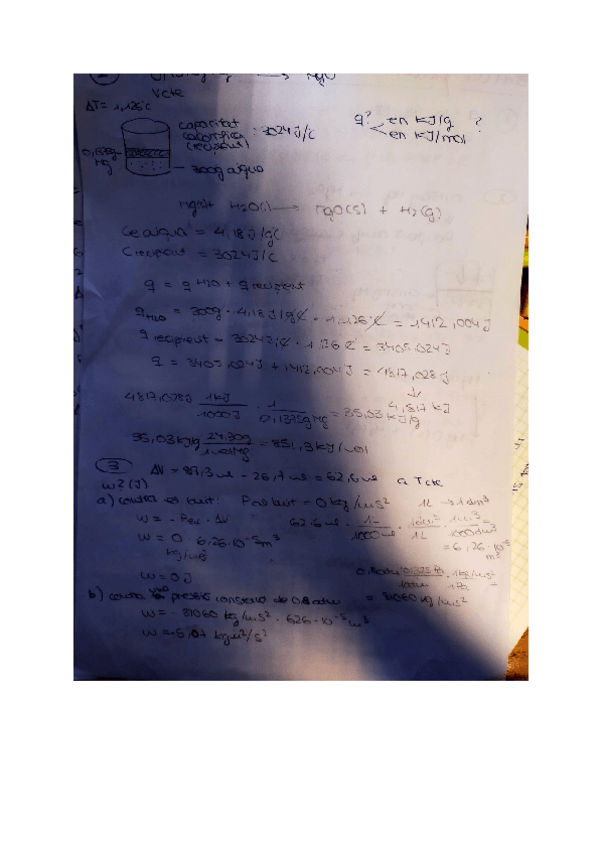 V cte
ΔT = 1,126°C
capacitat calorífica (recipient) : 3024 J/C
q? en KJ/g ?
en KJ/mol
300g aigua
H2O(l) → MgO(s) + H2(g)
Ce aigua = 4,18 J/gC
C recipient = 3024 J/C
q = q H2O + q recipient
q H2O = 300g · 4,18 J/g C · 1,126 C = 1412,004 J
q recipient = 3024 J/C · 1,126 C = 3405,024 J
q = 3405,024 J + 1412,004 J = 4817,028 J
↓
4,817 KJ
4817,028 J 1KJ/1000J · 1/0,1375g Mg = 35,03 KJ/g
35,03 KJ/g 24,30g/1 mol Mg = 851,3 KJ/mol
3 ΔV = 89,3 ml - 26,7 ml = 62,6 ml a T cte
w? (J)
a) contra el buit: P al buit = 0 kg/ms² 1L → 1 dm³
w = - Pex · ΔV
62,6 ml · 1L/1000 ml · 1 dm³/1L · 1 m³/1000 dm³ = 6,26·10⁻⁵ m³
w = 0 kg/ms² 6,26·10⁻⁵ m³
w = 0 J
b) contra pressió constant de 0,8 atm
= 81060 kg/ms²
w = - 81060 kg/ms² · 6,26·10⁻⁵ m³
w = -5,07 kg m²/s²